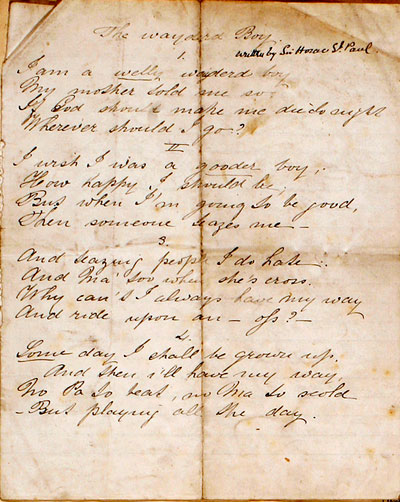 The wayderd Boy.
written by Sir Horace St Paul.
1.
I am a welly waiderd boy
My mother told me so
If God should make me die to night
Wherever should I go?
II
I wish I was a gooder boy,
How happy I should be,
But when I'm going to be good,
Then someone teazes me —
3.
And teazing people I do hate
And Ma' too when she's cross.
Why can't I always have my way
And ride upon an — oss? —
4.
Some day I shall be grown up.
And then i'll have my way
No Pa to beat, no Ma to scold
- But playing all the day.